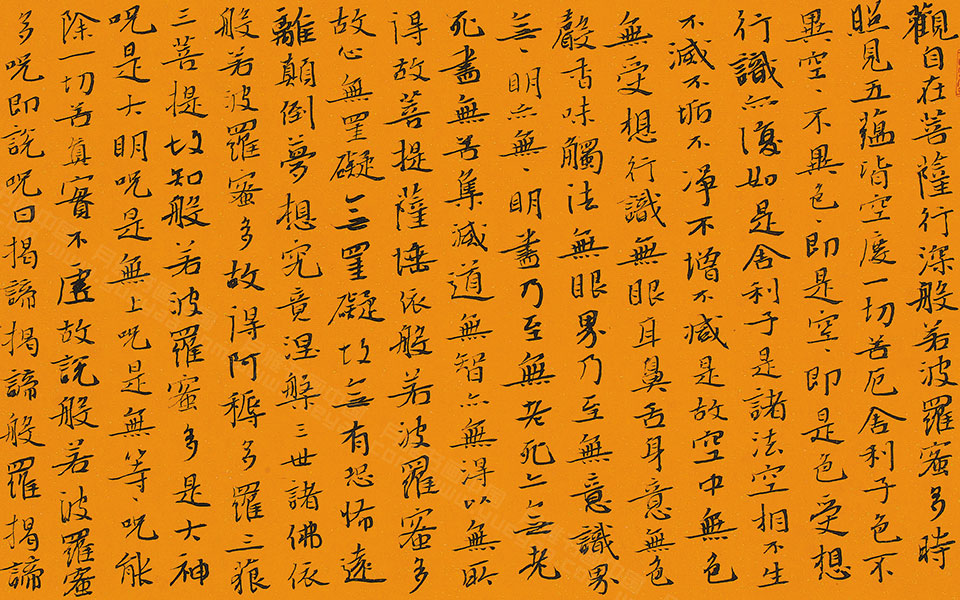 觀自在菩薩行深般若波羅蜜多時
照見五蘊皆空度一切苦厄舍利子色不
異空、不異色、即是空、即是色受想
行識亦復如是舍利子是諸法空相不生
不滅不垢不淨不增不減是故空中無色
無受想行識無眼耳鼻舌身意無色
聲香味觸法無眼界乃至無意識界
无、明亦無、明盡乃至無老死亦无老
死盡無苦集滅道無智亦無得以無所
得故菩提薩埵依般若波羅蜜多
故心無罣礙无罣礙故无有恐怖遠
離顛倒夢想究竟涅槃三世諸佛依
般若波羅蜜多故得阿耨多羅三藐
三菩提故知般若波羅蜜多是大神
呪是大明呪是無上呪是無等、呪能
除一切苦真實不虛故說般若波羅蜜
多呪即說呪曰揭諦揭諦般羅揭諦